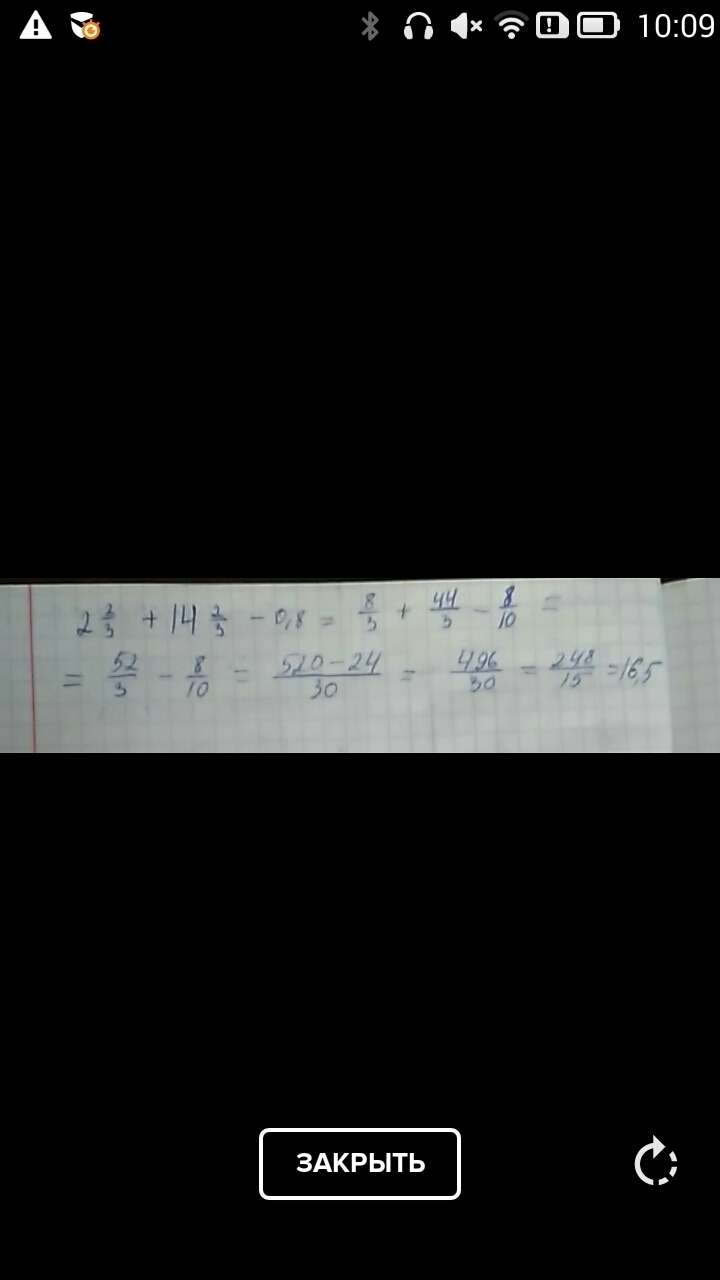 10:09
2 2/3 + 14 2/3 - 0,8 = 8/3 + 44/3 - 8/10 =
= 52/3 - 8/10 = 520-24/30 = 496/30 = 248/15 = 16,5
ЗАКРЫТЬ